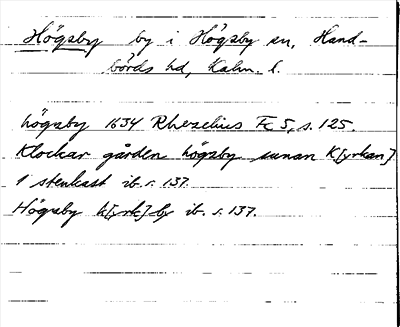 Högsby by i Högsby sn, Hand-
börds hd, Kalm. l.
högsby 1634 Rhezelius Fc 5, s. 125.
Klockar gården högsby sunan K[yrkan]
1 stenkast ib. s. 137.
Högsby k[yrk]by ib. s. 137.